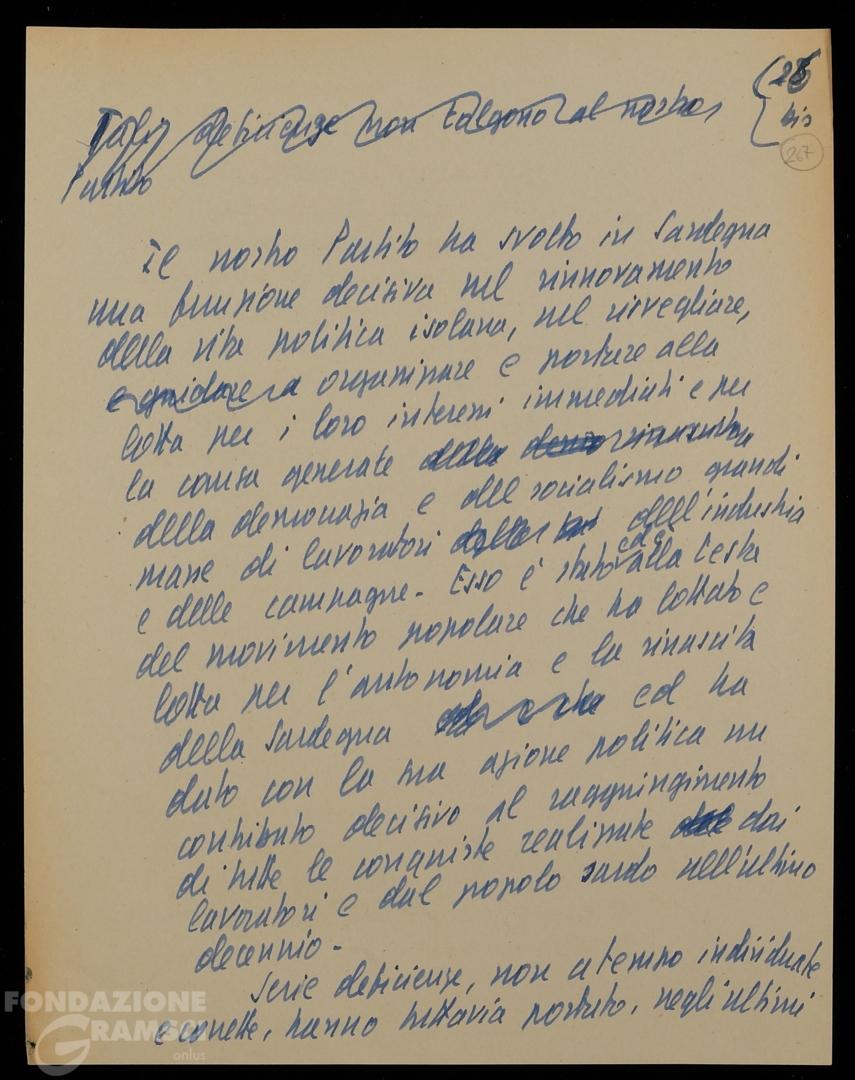 (28
bis
267
Tali deficienze non tolgono al nostro
Partito
Il nostro Partito ha svolto in Sardegna
una funzione decisiva nel rinnovamento
della vita politica isolana, nel risvegliare,
e guidare a organizzare e portare alla
lotta per i loro interessi immediati e per
la causa generale della rinascita
della democrazia e del socialismo grandi
masse di lavoratori dell'industria
e delle campagne. Esso è stato ed è alla testa
del movimento popolare che ha lottato e
lotta per l'autonomia e la rinascita
della Sardegna ed ha
dato con la sua azione politica un
contributo decisivo al raggiungimento
di tutte le conquiste realizzate dai
lavoratori e dal popolo sardo nell'ultimo
decennio.
Serie deficienze, non a tempo individuate
e corrette, hanno tuttavia portato, negli ultimi
FONDAZIONE
GRAMSCI
onlus